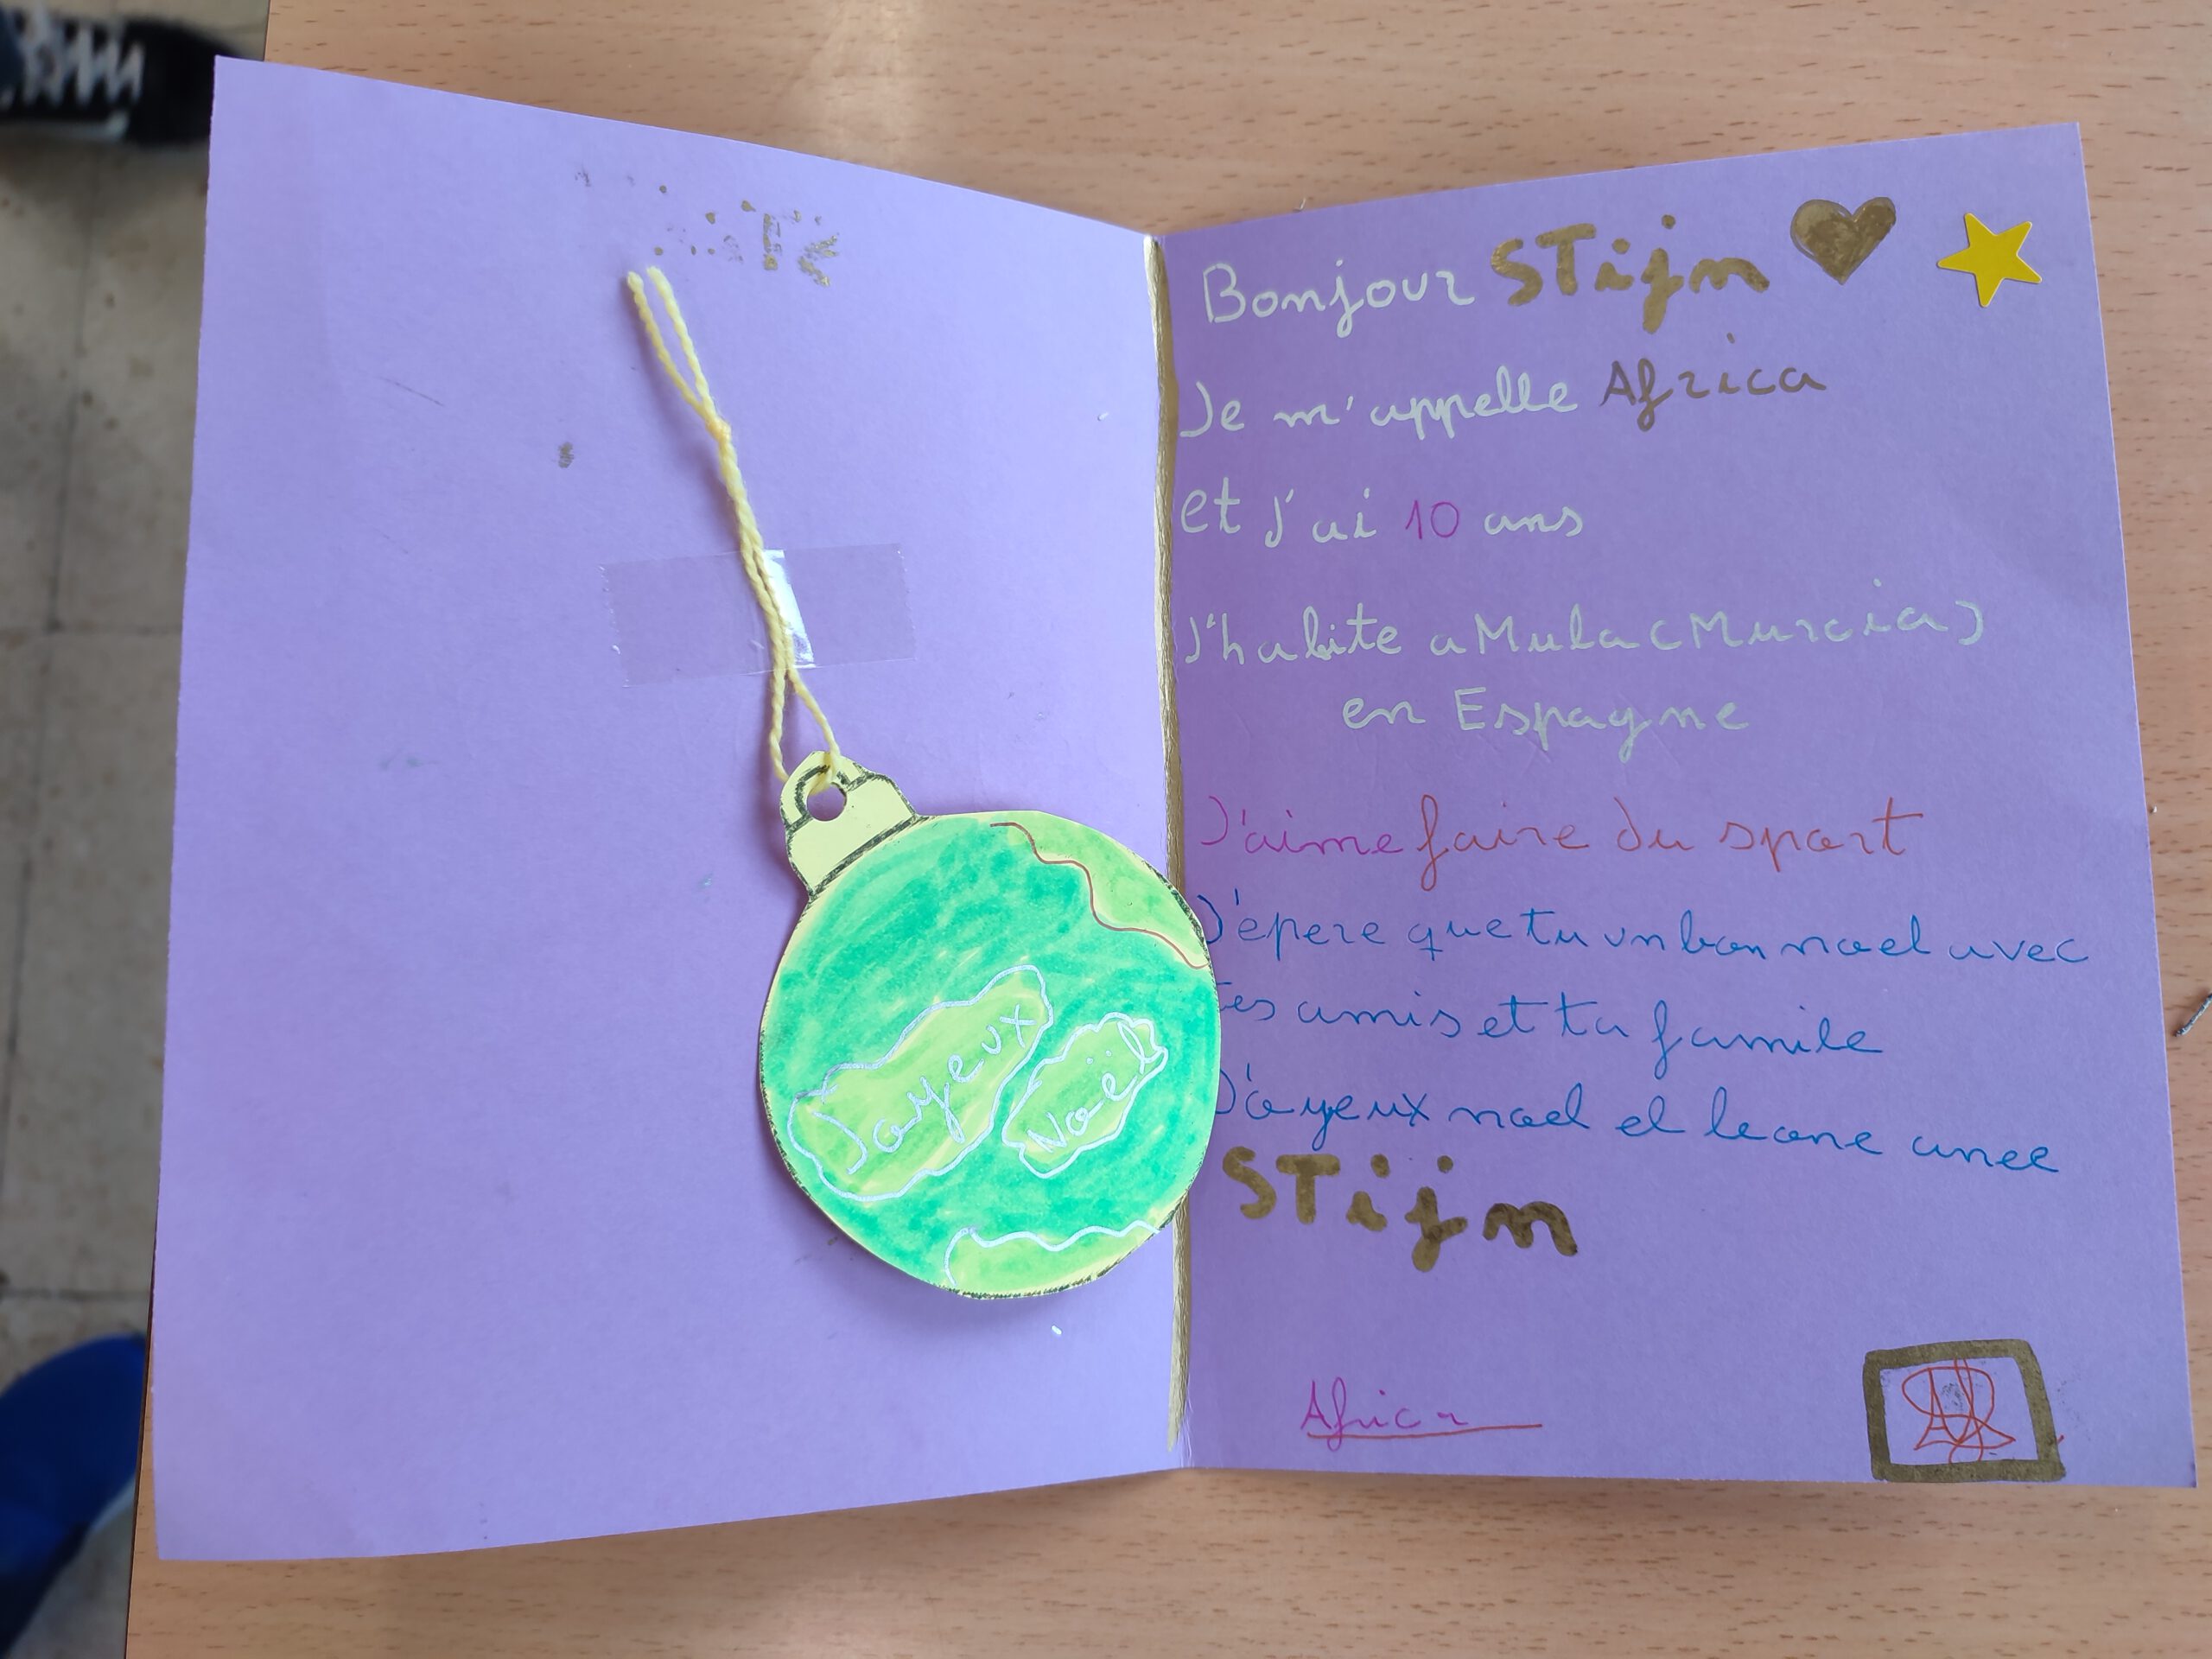 Joyeux
Noël
Bonjour STijn
Je m'appelle Africa
et j'ai 10 ans
J'habite a Mula (Murcia)
en Espagne
J'aime faire du sport
J'épere que tu un bon noel avec
tes amis et ta famile
J'oyeux noel el leone anee
STijn
Africa